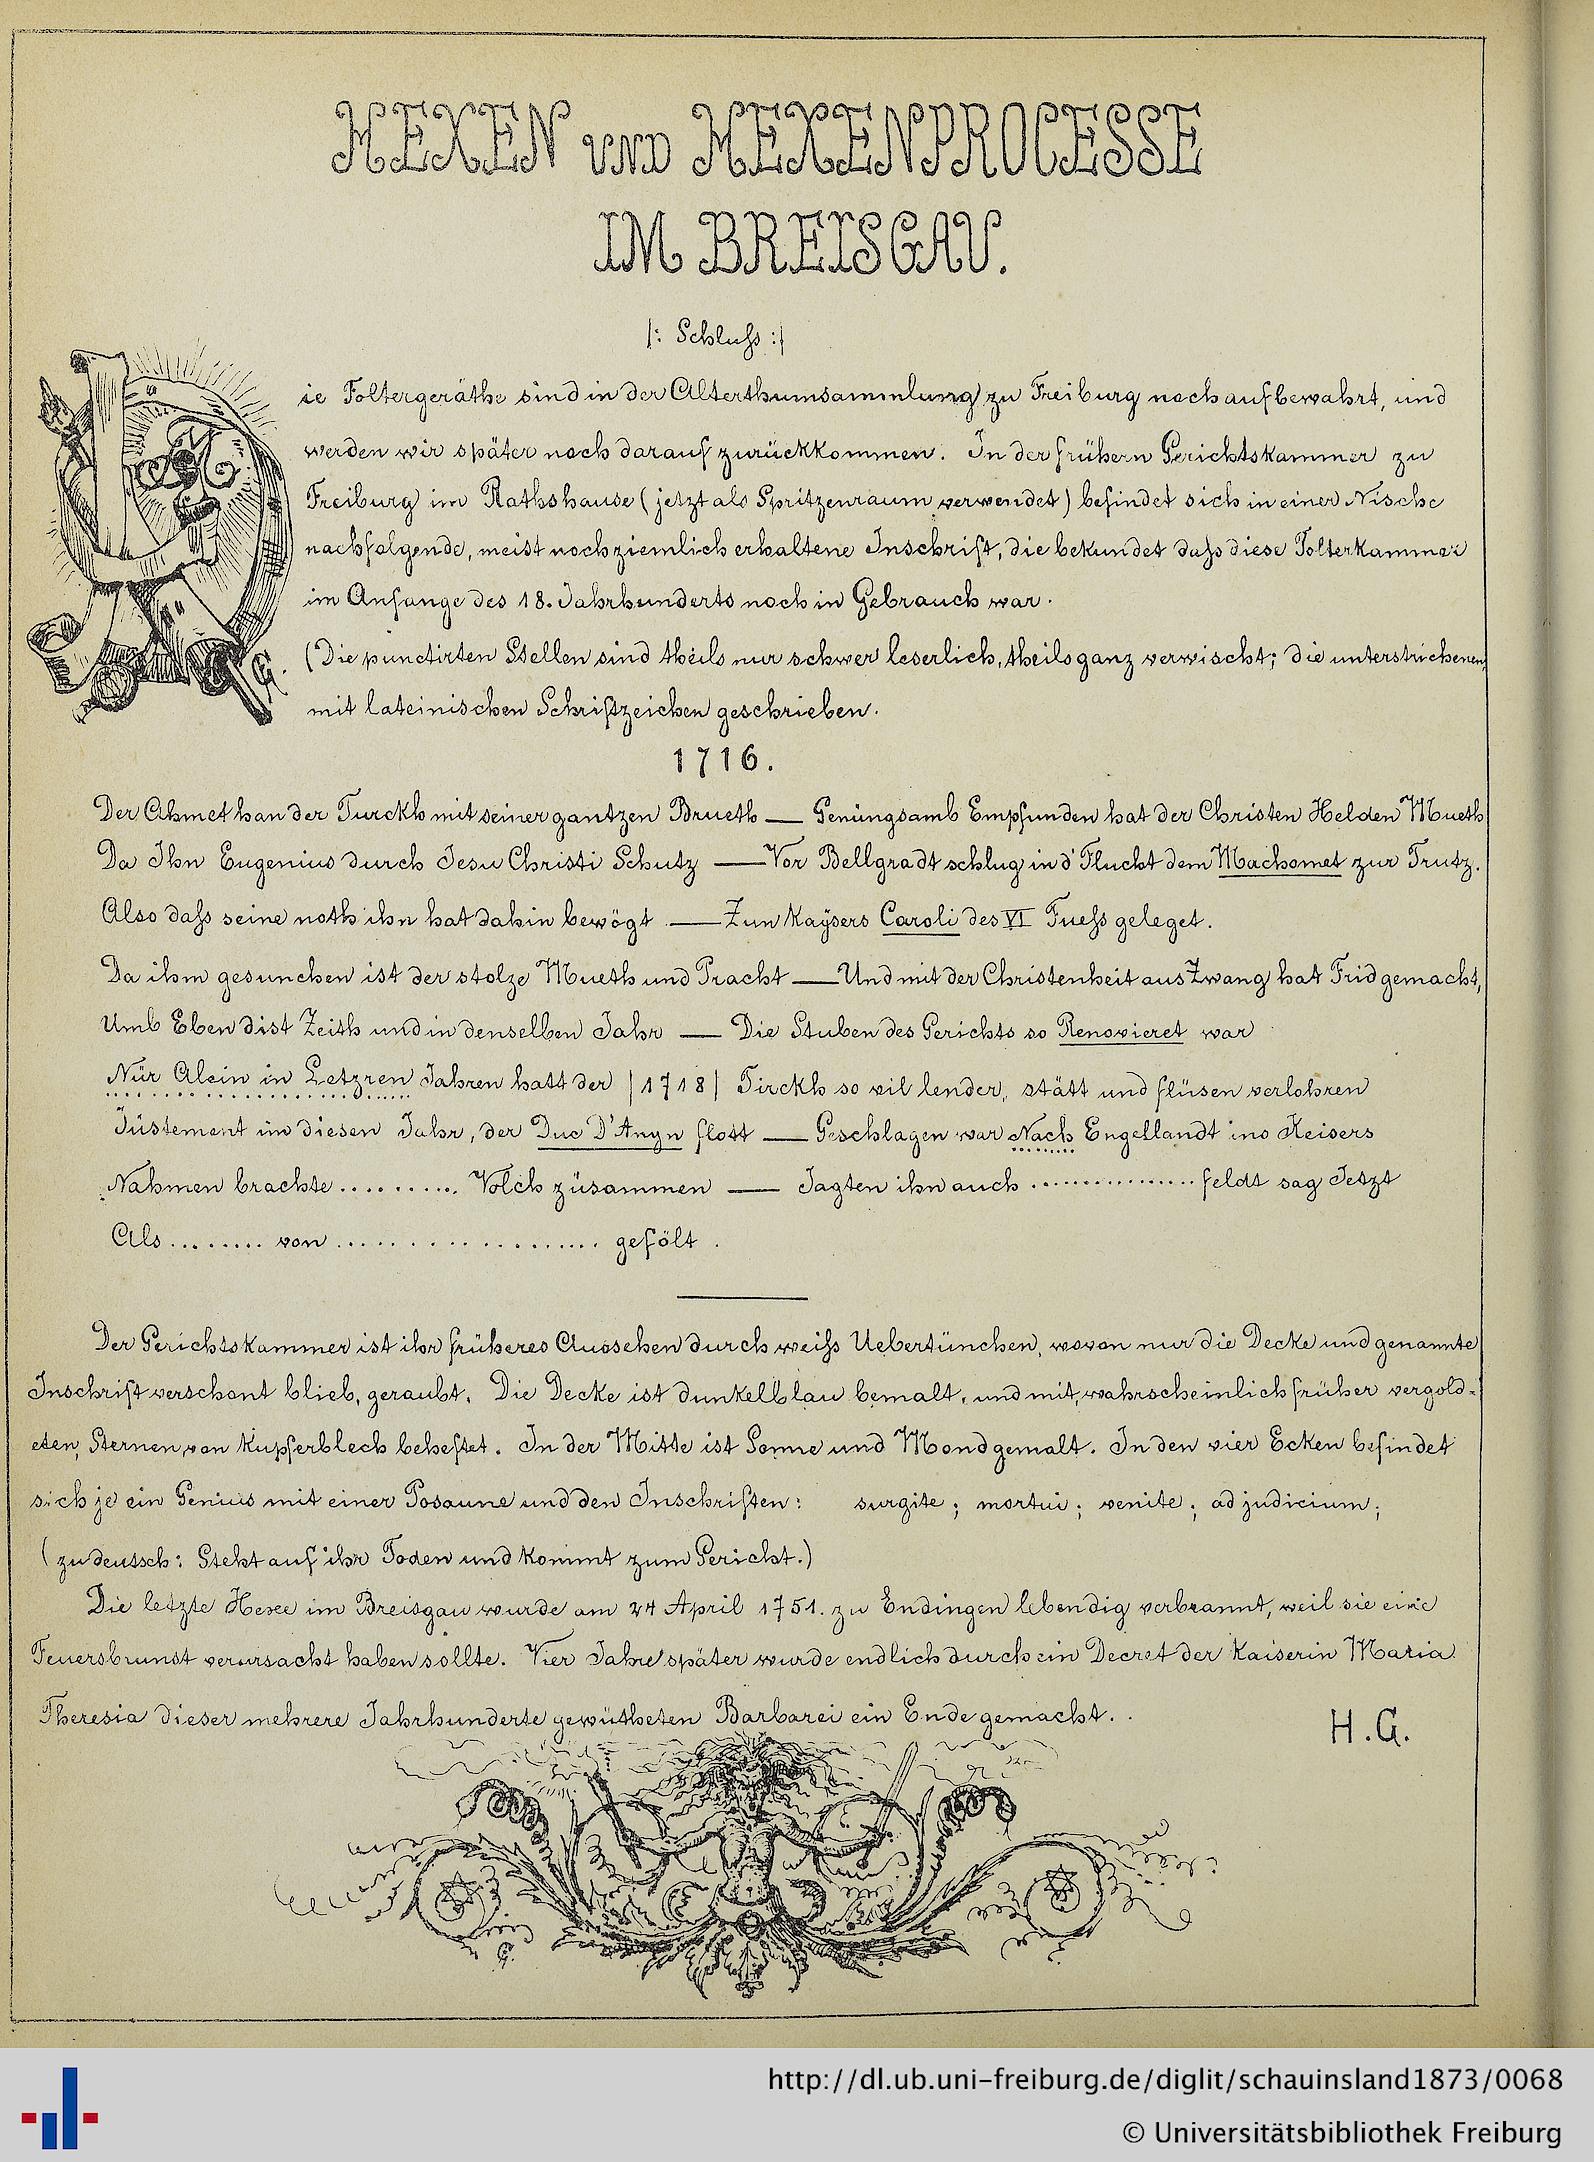 HEXEN UND HEXENPROCESSE
IM BREISGAU.
|: Schluß :|
Die Foltergeräthe sind in der Alterthumsammlung zu Freiburg noch aufbewahrt, und
werden wir später noch darauf zurückkommen. In der frühern Gerichtskammer zu
Freiburg im Rathshause (jetzt als Spritzenraum verwendet) befindet sich in einer Nische
nachfolgende, meist noch ziemlich erhaltene Inschrift, die bekundet daß diese Folterkammer
im Anfange des 18. Jahrhunderts noch in Gebrauch war.
G.
(Die punctirten Stellen sind theils nur schwer leserlich, theils ganz verwischt; die unterstrichenen
mit lateinischen Schriftzeichen geschrieben.
1716.
Der Ahmet han der Turckh mit seiner gantzen Brueth — Genüngsamb Empfunden hat der Christen Helden Mueth
Da Ihn Eugenius durch Jesu Christi Schutz — Vor Bellgradt schlug in d' Flucht dem Machomet zur Trutz.
Also daß seine noth ihn hat dahin bewögt — Zun Kaÿsers Caroli des VI Fueß geleget.
Da ihm gesunchen ist der stolze Mueth und Pracht — Und mit der Christenheit aus Zwang hat Frid gemacht,
Umb Eben dist Zeith und in denselben Jahr — Die Stuben des Gerichts so Renovieret war
Nür Alein in Letzren Jahren hatt der |1718| Tirckh so vil lender, stätt und flüsen verlohren
Jüstement im diesen Jahr, der Duc D'Anyn flott — Geschlagen war Nach Engellandt ins Keisers
Nahmen brachte .......... Volck züsammen — Jagten ihn auch ................ feldt sag Jetzt
Als ......... von .................... gefölt .
Der Gerichtskammer ist ihr früheres Aussehen durch weiß Uebertünchen, wovon nur die Decke und genannte
Inschrift verschont blieb, geraubt. Die Decke ist dunkelblau bemalt, und mit, wahrscheinlich früher vergold-
eten, Sternen, von Kupferblech beheftet. In der Mitte ist Sonne und Mond gemalt. In den vier Ecken befindet
sich je ein Genius mit einer Posaune und den Inschriften: surgite; mortui; venite; ad judicium;
(zu deutsch: Steht auf ihr Toden und kommt zum Gericht.)
Die letzte Hexe im Breisgau wurde am 24 April 1751. zu Endingen lebendig verbrannt, weil sie eine
Feuersbrunst verursacht haben sollte. Vier Jahre später wurde endlich durch ein Decret der Kaiserin Maria
Theresia dieser mehrere Jahrhunderte gewütheten Barbarei ein Ende gemacht. .
H.G.
G.
http://dl.ub.uni-freiburg.de/diglit/schauinsland1873/0068
© Universitätsbibliothek Freiburg